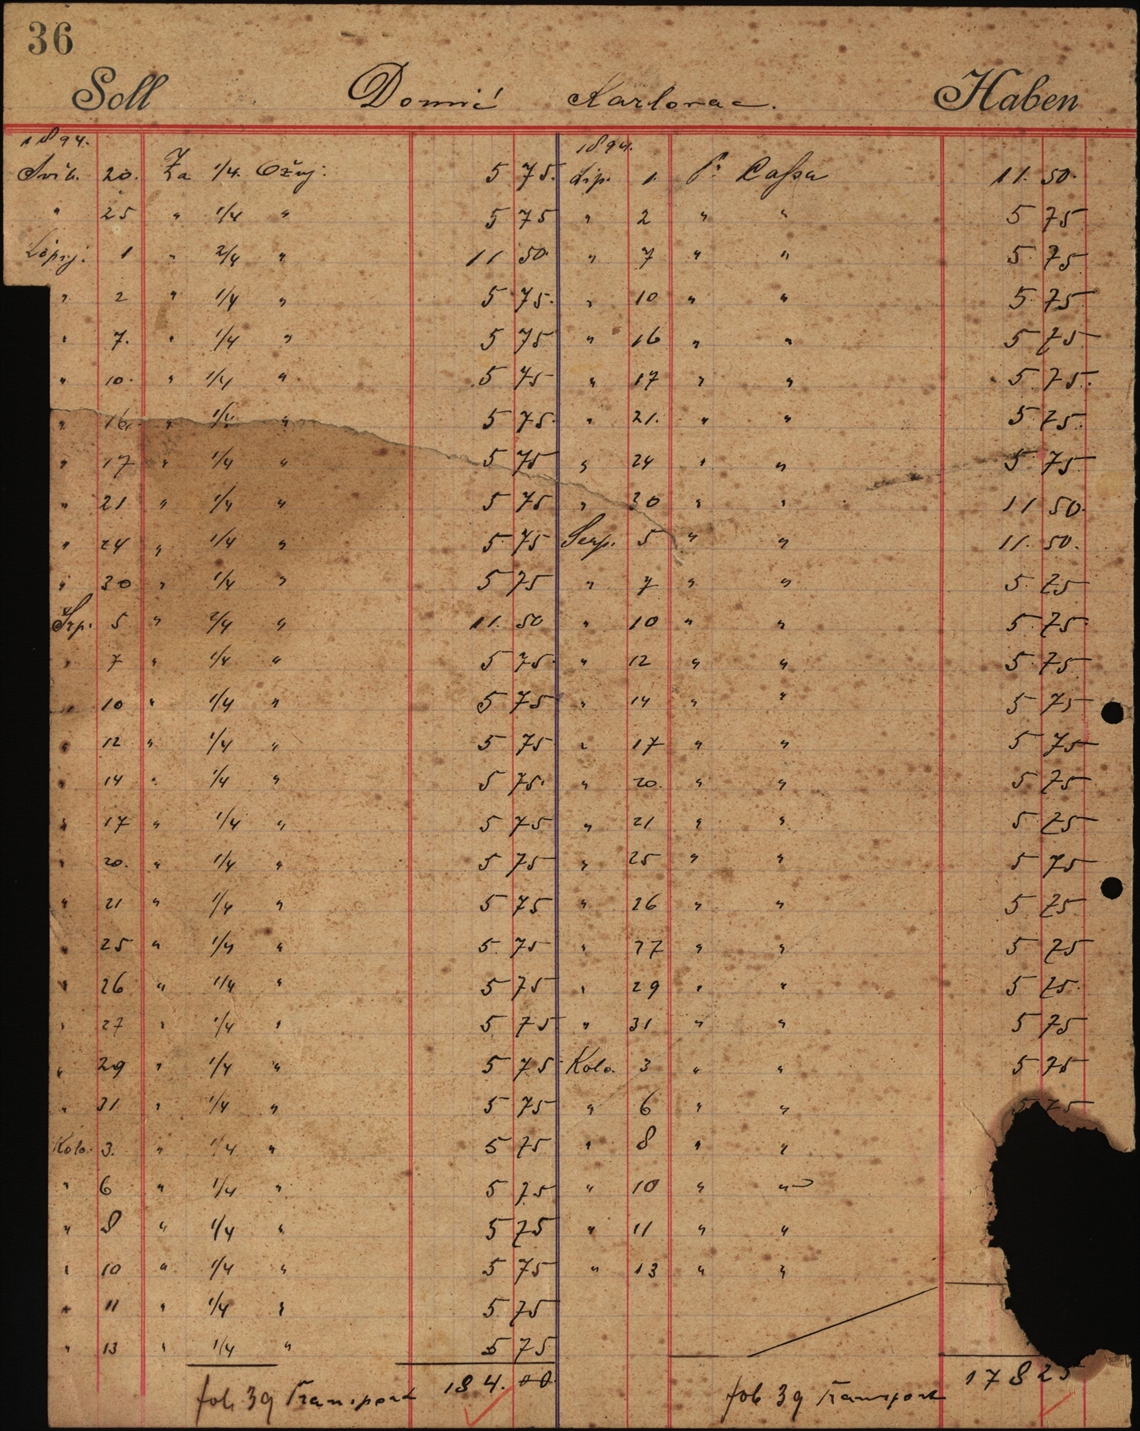 36
Soll Domić Karlovac. Haben
1894. 1894.
Svib. 20. Za 1/4 Ožuj. 5 75. Lip. 1. Pr Cassa 11. 50.
" 25 " 1/4 " 5 75 " 2 " " 5 75
Lipnj. 1 " 2/4 " 11 50. " 7 " " 5 75
" 2 " 1/4 " 5 75. " 10 " " 5 75
" 7. " 1/4 " 5 75 " 16 " " 5 75
" 10. " 1/4 " 5 75 " 17 " " 5 75.
" 16. " 1/4 " 5 75. " 21. " " 5 75.
" 17 " 1/4 " 5 75 " 24 " " 5 75
" 21 " 1/4 " 5 75 " 30 " " 11 50.
" 24 " 1/4 " 5 75 Serp. 5 " " 11. 50.
" 30 " 1/4 " 5 75 " 7 " " 5 75
Srp. 5 " 2/4 " 11. 50 " 10 " " 5 75
" 7 " 1/4 " 5 75. " 12 " " 5 75
" 10 " 1/4 " 5 75 " 14 " " 5 75
" 12 " 1/4 " 5 75 " 17 " " 5 75
" 14 " 1/4 " 5 75. " 20. " " 5 75
" 17 " 1/4 " 5 75 " 21 " " 5 75
" 20. " 1/4 " 5 75 " 25 " " 5 75
" 21 " 1/4 " 5 75 " 26 " " 5 75
" 25 " 1/4 " 5 75 " 27 " " 5 75
" 26 " 1/4 " 5 75 " 29 " " 5 75.
" 27 " 1/4 " 5 75 " 31 " " 5 75
" 29 " 1/4 " 5 75 Kolo. 3 " " 5 75
" 31 " 1/4 " 5 75 " 6 " " 5 75
Kolo. 3. " 1/4 " 5 75 " 8 " "
" 6 " 1/4 " 5 75 " 10 " "
" 8 " 1/4 " 5 75 " 11 " "
" 10 " 1/4 " 5 75 " 13 " "
" 11 " 1/4 " 5 75
" 13 " 1/4 " 5 75
fol. 39 Transport 184. 00. fol 39 Transport 178 25